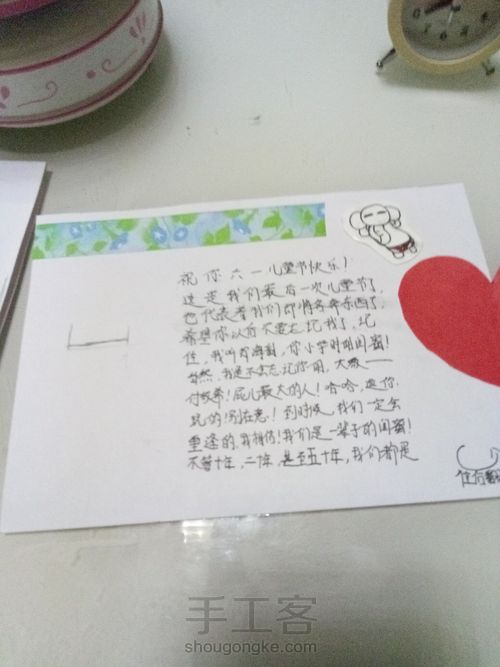 祝你六一儿童节快乐！
这是我们最后一次儿童节了，
也代表着我们即将各奔东西了，
希望你以后不要忘记我了，记
住，我叫 ，你小学时期闺蜜！
当然，我是不会忘记你的，大
！屁儿最大的人！哈哈，逗你
玩的！别在意！到时候，我们一定会
重逢的，我相信！我们是一辈子的闺蜜！
不管十年，二十年，甚至五十年，我们都是
往右
手工客
shougongke.com